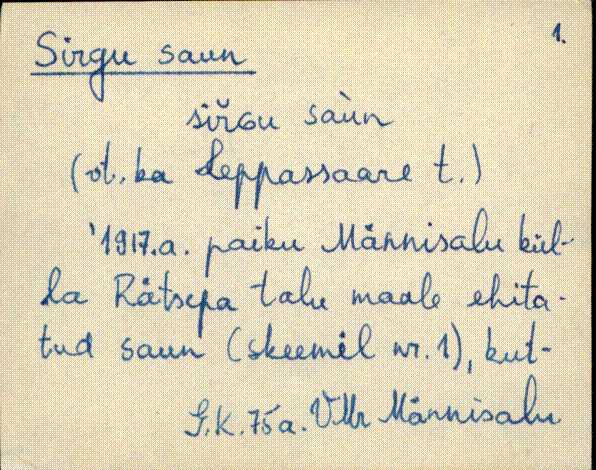 1.
Sirgu saun
sir̆Gu saùn
(vt. ka Leppassaare t.)
'1917.a. paiku Männisalu kül-
la Rätsepa talu maale ehita-
tud saun (skeemil nr. 1), kut-
S.K. 75 a. VMr Männisalu